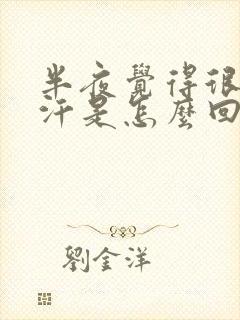 半夜覺得很
汗是怎麼回
劉金洋